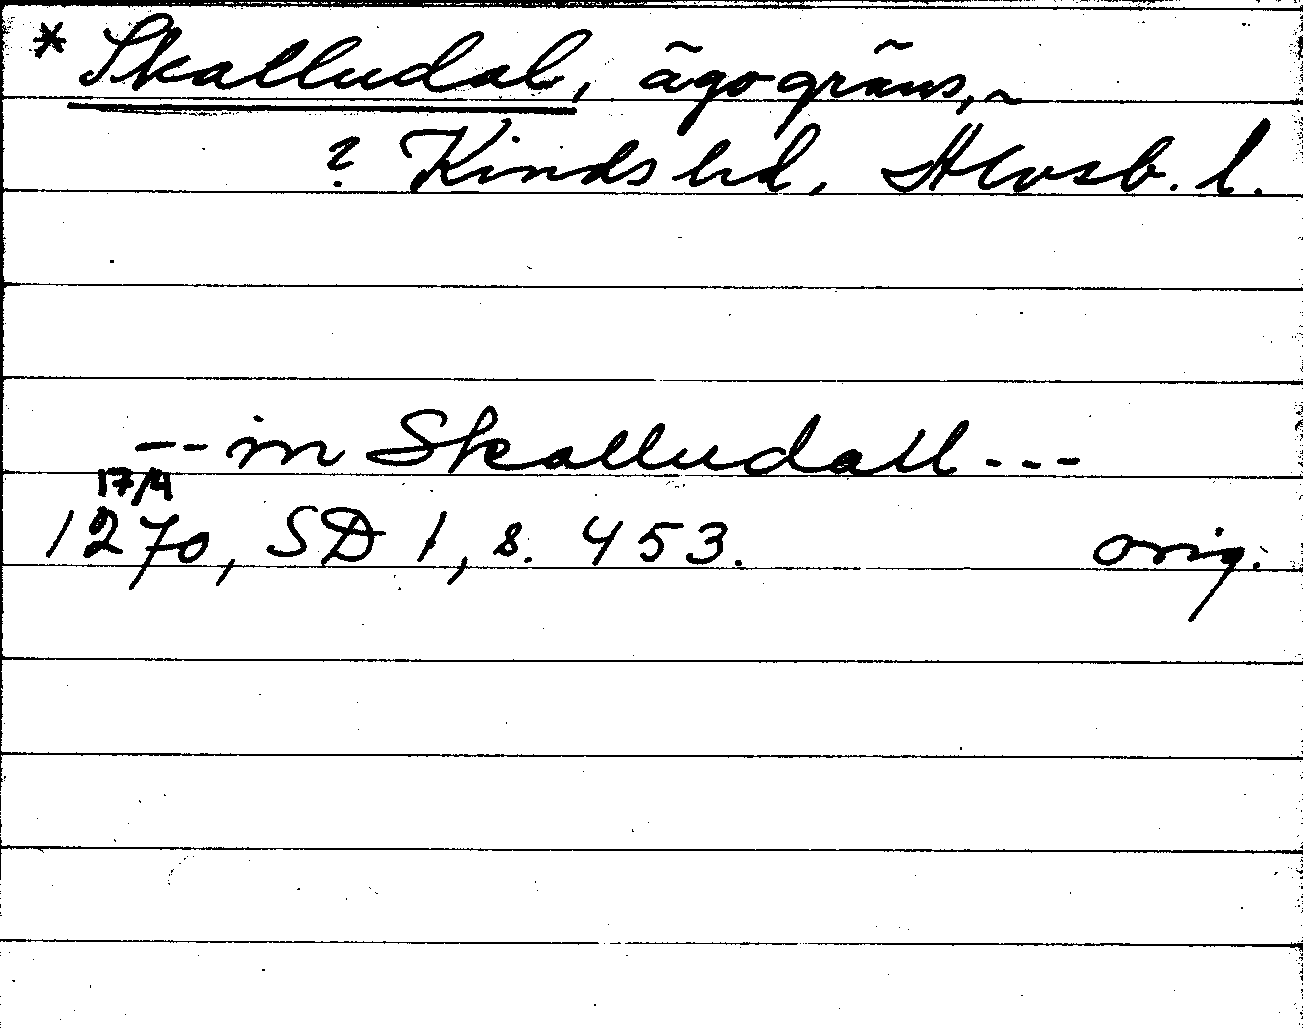 * Skalludal, ägogräns, ~
? Kinds hd, Älvsb. l.
-- in Skalludall ---
17/4
1270, SD 1, s. 453. orig.